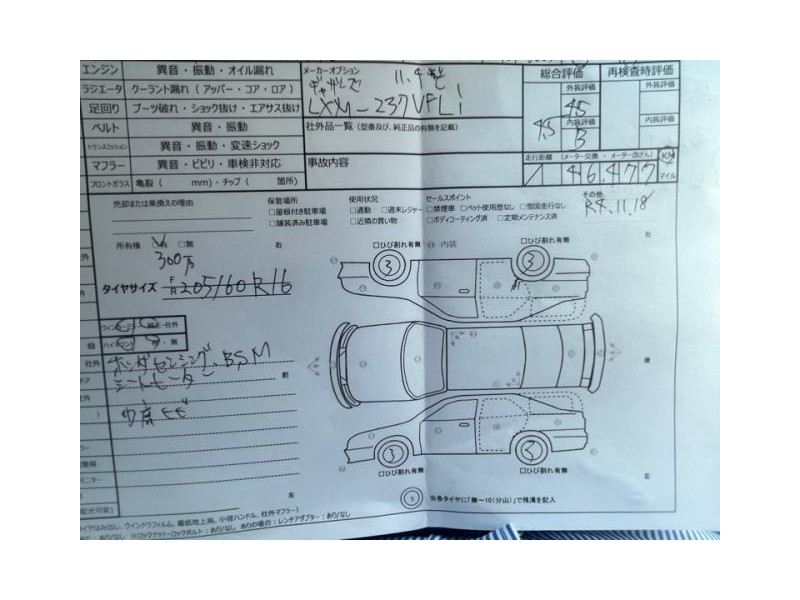 エンジン 異音・振動・オイル漏れ メーカーオプション 総合評価 再検査時評価
ラジエータ クーラント漏れ（アッパー・コア・ロア） ギャザズ 11.4 外装評価 外装評価
足回り ブーツ破れ・ショック抜け・エアサス抜け LXM-237VFLi 4.5
ベルト 異音・振動 社外品一覧（型番及び、純正品の有無を記載） 4.5 内装評価 内装評価
トランスミッション 異音・振動・変速ショック B
マフラー 異音・ビビリ・車検非対応 事故内容 走行距離 (メーター交換・メーター改ざん) KM
フロントガラス 亀裂（ mm）・チップ（ 箇所） 46,477 マイル
売却または乗換えの理由 保管場所 使用状況 セールスポイント その他
□屋根付き駐車場 □通勤 □週末レジャー □禁煙車 □ペット使用歴なし □雪国走行なし R4.11.18
□舗装済み駐車場 □近隣の買い物 □ボディコーティング済 □定期メンテナンス済
所有権 □有 □無 右 □ひび割れ有無 内装 □ひび割れ有無 右
300万
3 3
タイヤサイズ F R 205/60R16
社外
ホンダセンシング BSM
シートモーター 前 後
3 3
左 □ひび割れ有無 □ひび割れ有無 左
5 ※各タイヤに「無～10（分山）」で残溝を記入
ウインドウフィルム、最低地上高、小径ハンドル、社外マフラー）
あり/なし ※ロックナット・ロックボルト：あり/なし ありの場合：レンチアダプター：あり/なし